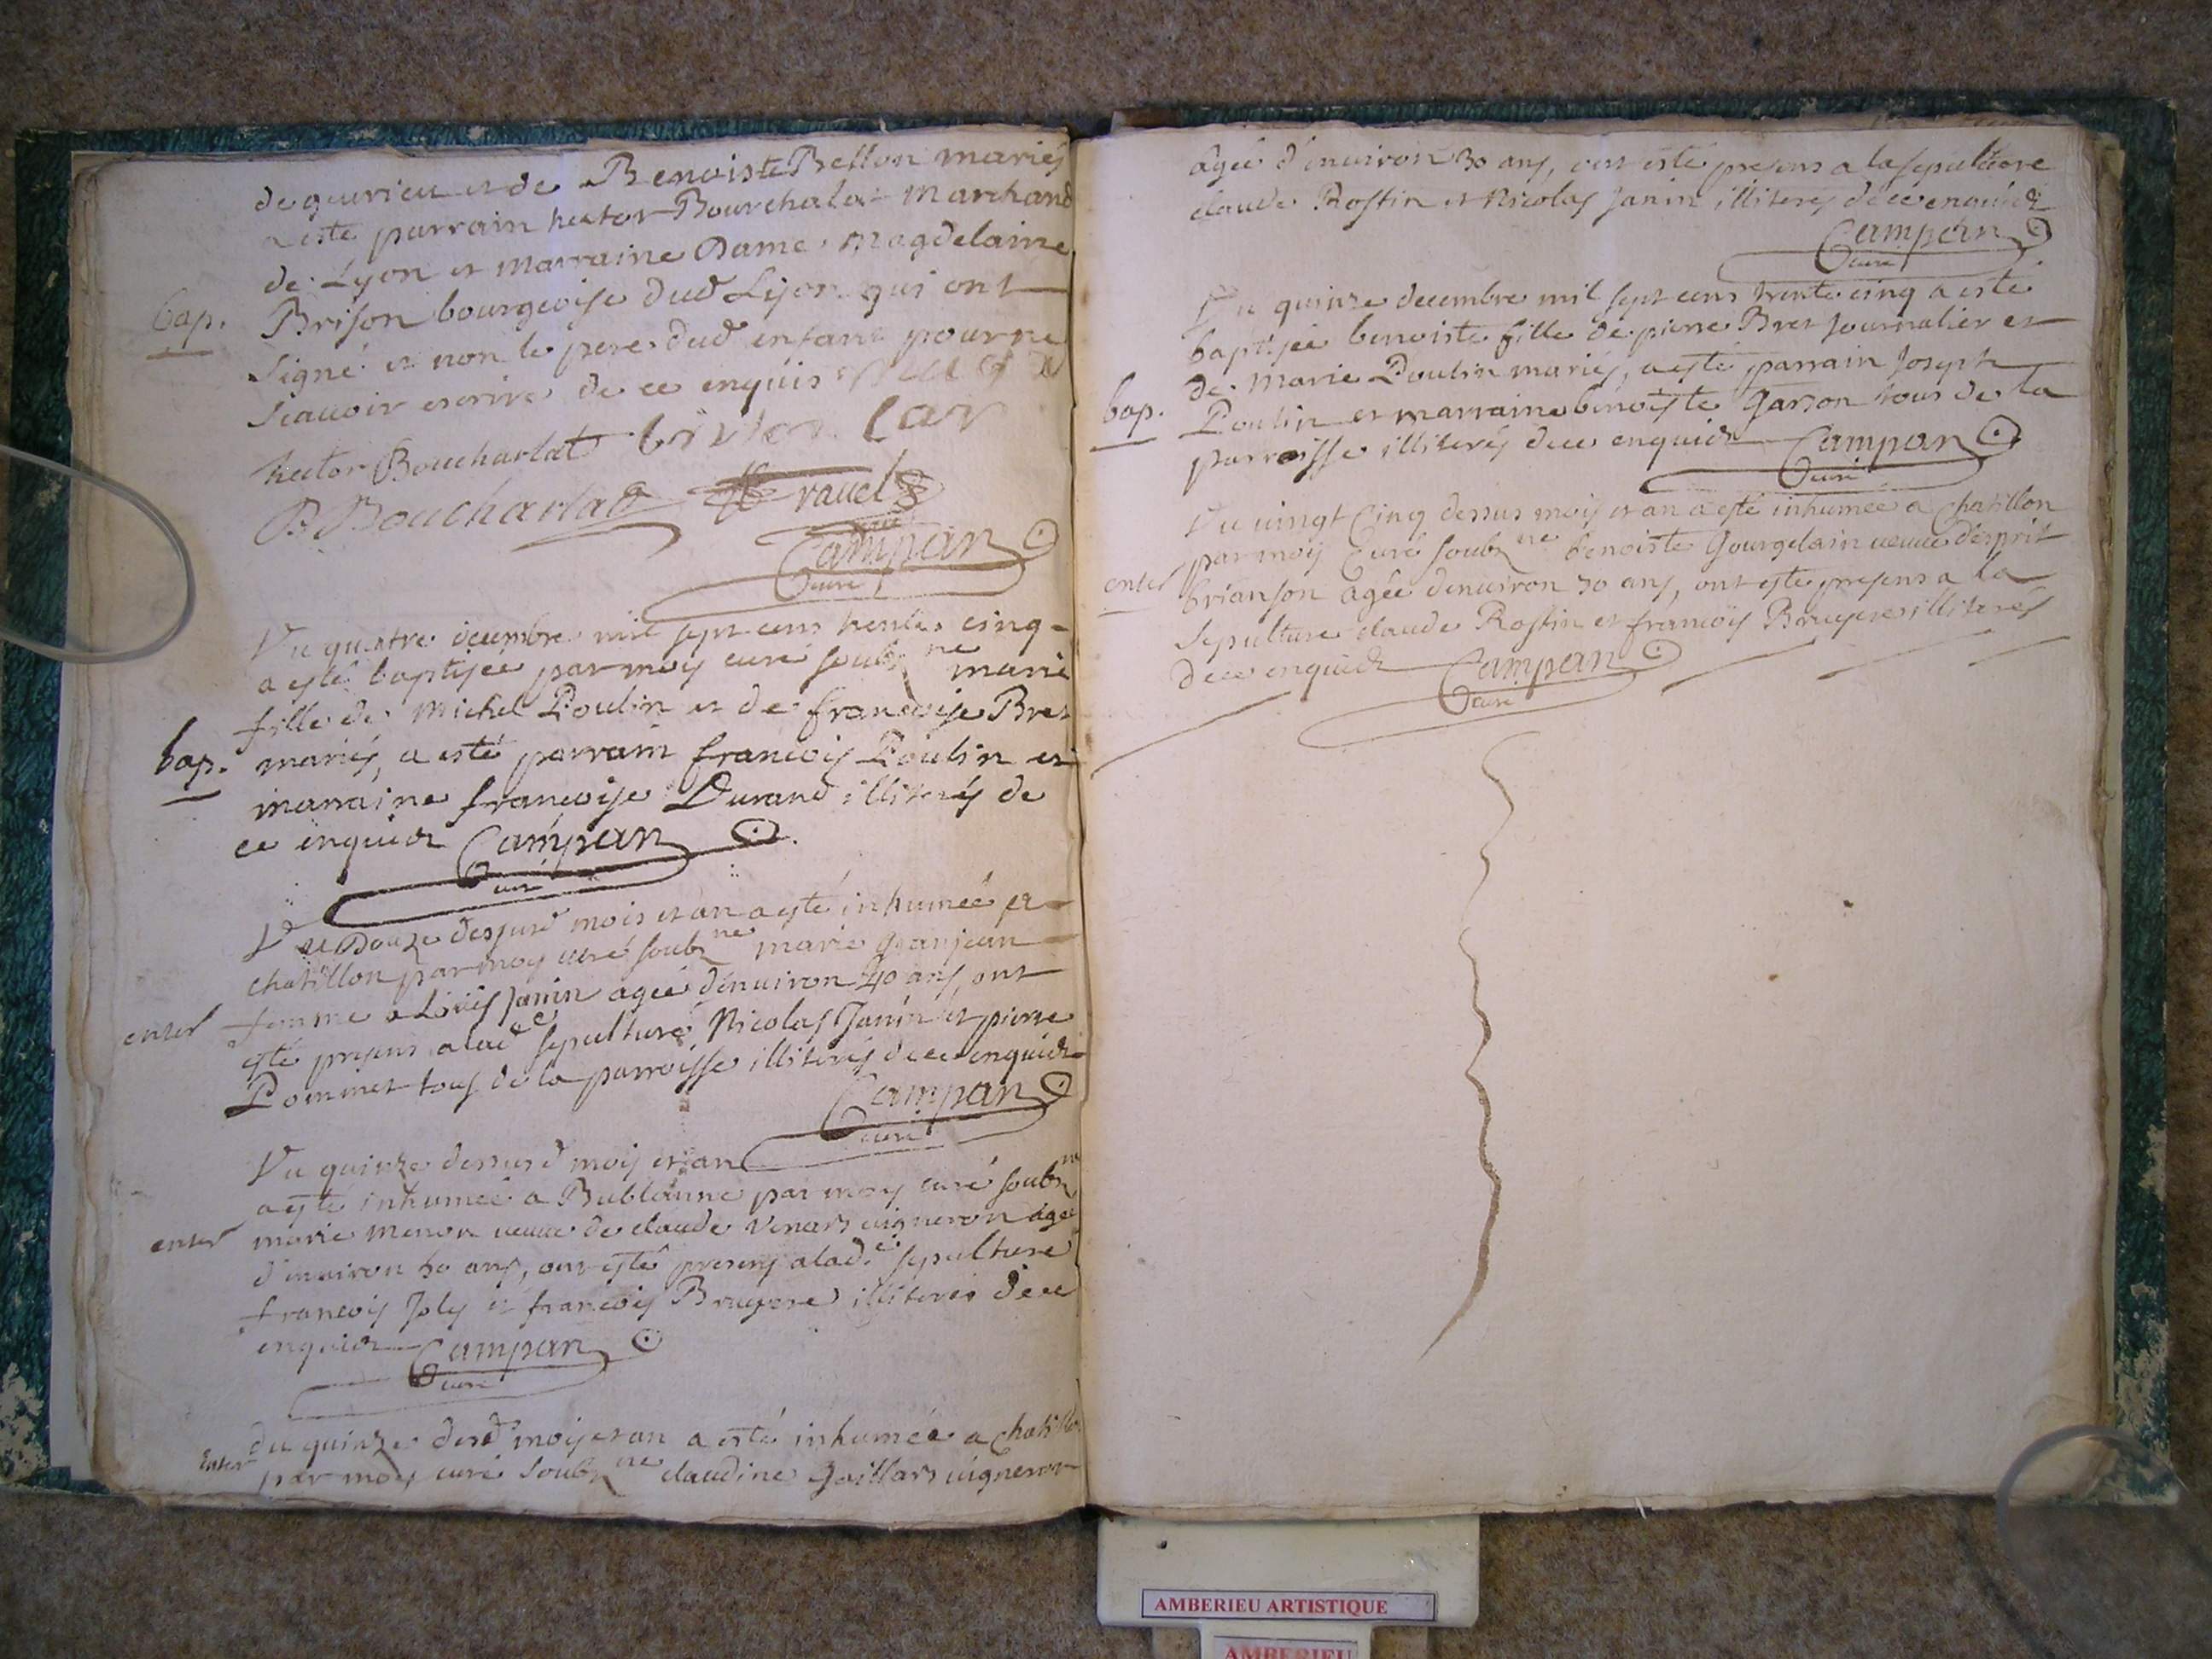 de quirieu et de Benoiste Bellon mariés
a esté parrain hector Bourchalat marchand
de Lyon et marraine Dame Magdelaine
bap. Brison bourgeoise dud Lyon qui ont
signé et non le pere dud enfant pour ne
scauoir escrire de ce enquis
hector Boucharlat
B Boucharlat ravel
Campan
curé
Du quatre decembre mil sept cens trente cinq
a esté baptisée par moy curé soubz ne marie
fille de Michel Poulin et de francoise Bret
bap. mariés, a esté parrain francois Poulin et
marraine francoise Durand illiterés de
ce enquier Campan
curé
Du Douze desusd mois et an a esté inhumée a
chatillon par moy curé soubz ne marie granjean
enter femme a Loüis Janin agée denuiron 40 ans, ont
esté presens a lad e sepulture Nicolas Janin et pierre
Pommet tous de la parroisse illiterés de ce enquier
Campan
curé
Du quinze dessusd mois et an
a esté inhumée a Bublanne par moy curé soubz ne
enter marie menon ueuue de claude Venard uigneron agée
d'enuiron 50 ans, ont esté presens a lad e sepulture
francois Joly et francois Bruyere illiterés de ce
enquier Campan
curé
du quinze desd mois et an a esté inhumée a chatillon
enter par moy curé soubz ne claudine Gaillard uigneron
agée d'enuiron 30 ans, ont esté presens a la sepulture
claude Rostin et Nicolas Janin illiterés de ce enquier
Campan
curé
Du quinze decembre mil sept cens trente cinq a esté
baptisée benoiste fille de pierre Bret Journalier et
de Marie Poulin mariés, a esté parrain Joseph
bap. Poulin et marraine benoiste Garson tous de la
parroisse illiterés de ce enquier Campan
curé
Du uingt Cinq dessus mois et an a esté inhumée a Chatillon
par moy Curé soubz ne benoiste Gourgelain ueuue d'esprit
enter brianson agée denuiron 30 ans, ont esté presens a la
sepulture claude Rostin et francois Bruyere illiterés
de ce enquier Campan
curé
AMBERIEU ARTISTIQUE
AMBERIEU